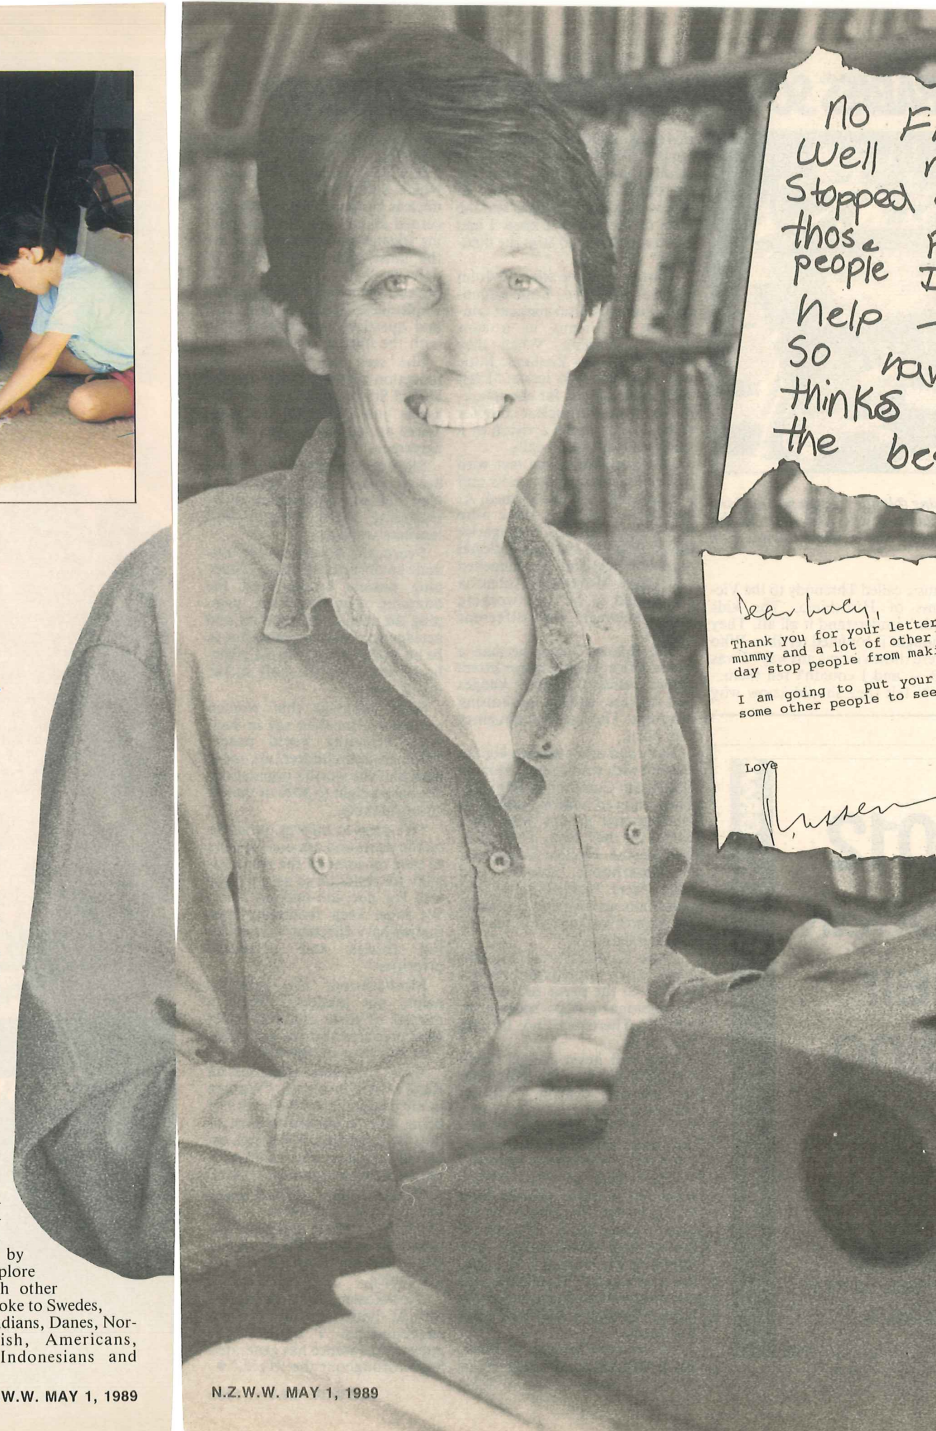 by
plore
h other
oke to Swedes,
dians, Danes, Nor-
ish, Americans,
Indonesians and
W.W. MAY 1, 1989
no
Well
Stopped
those
people I
help
So now
thinks
the be
Dear Lucy,
Thank you for your letter
mummy and a lot of other
day stop people from maki
I am going to put your
some other people to see
Love
N.Z.W.W. MAY 1, 1989